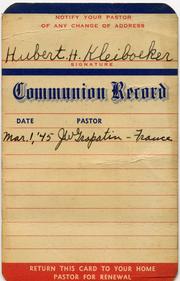 NOTIFY YOUR PASTOR
OF ANY CHANGE OF ADDRESS
Hubert. H. Kleiboeker
SIGNATURE
Communion Record
DATE PASTOR
Mar. 1, '45 — France
RETURN THIS CARD TO YOUR HOME
PASTOR FOR RENEWAL